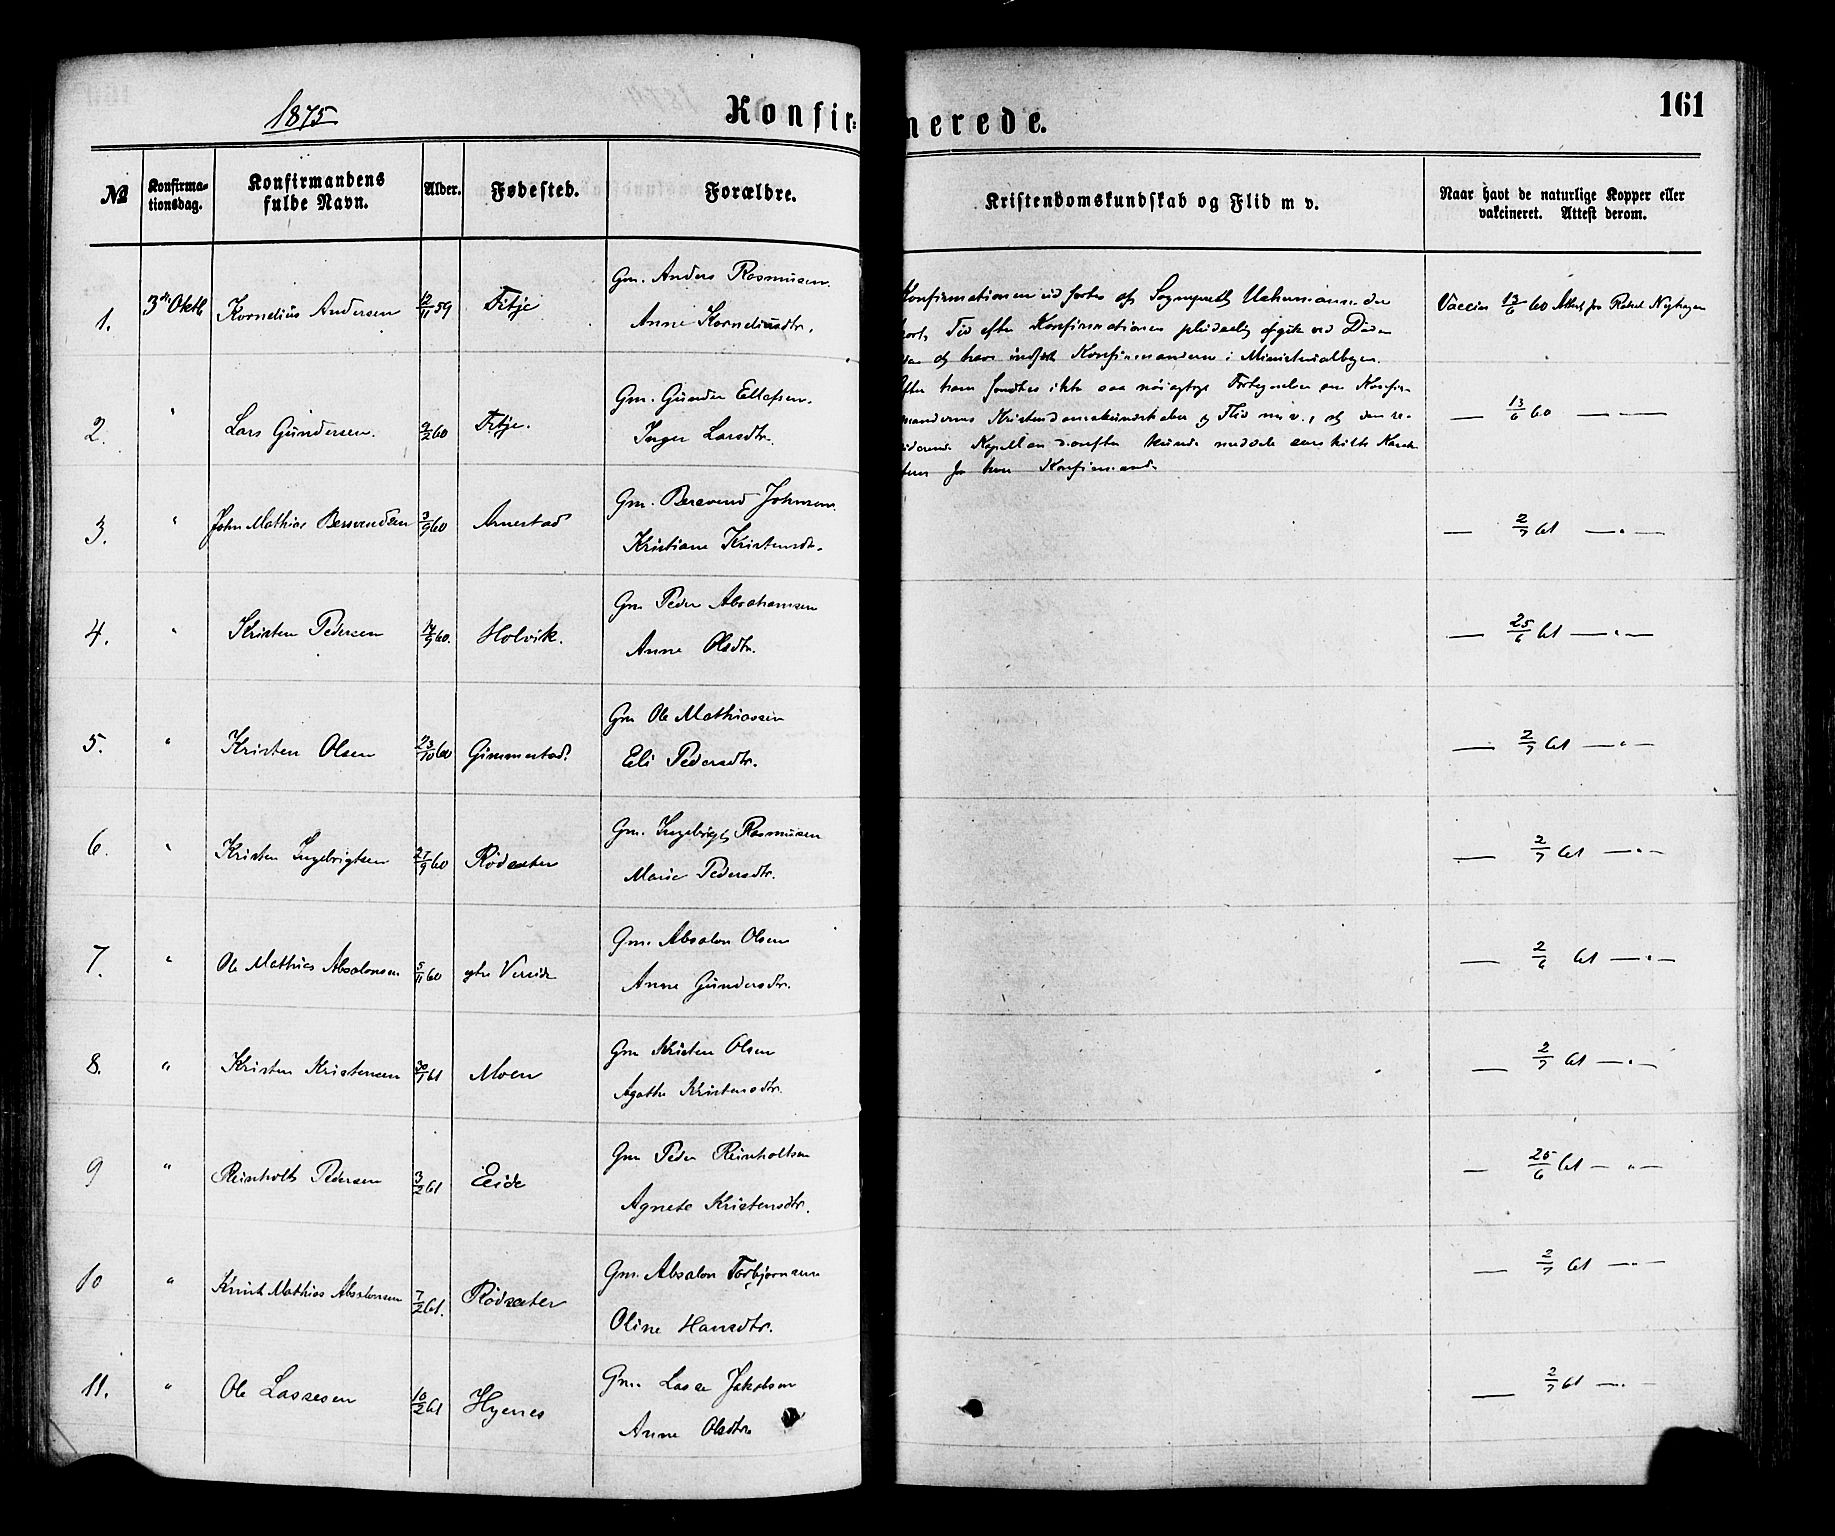 1875
Konfir=
merede.
161
No
Konfirma=
tionsdag.
Konfirmandens
fulde Navn.
Alder.
Fødested.
Forældre.
Kristendomskundskab og Flid m v.
Naar havt de naturlige Kopper eller
vakcineret. Attest derom.
1. 3die Oktb Kornelius Andersen 12/11 59 Fitje Gm. Anders Rasmusen
Anne Korneliusdtr.
Konfirmationen udførtes af Sogneprest Uchermann der
kort Tid efter Konfirmationen pludselig afgik ved Døden
Konfirmanderne i Ministerialbogen.
Efter ham fandtes ikke saa nøiagtige Fortegnelser om Konfir-
mandernes Kristendomskundskaber og Flid m. v., at den re-
siderende Kapellan derefter kunde meddele
for hver Konfirmand.
Vaccin 13/6 60 Attest fra Rebek Nyhagen
2. " Lars Gundersen. 9/2 60 Fitje. Gm. Gunder Ellefsen.
Inger Larsdtr.
— 13/6 60 — —
3. " John Mathias Bersvendsen 3/9 60 Arnestad Gm. Bersvend Johnsen
Kristiane Kristensdtr.
— 2/7 61 — " —
4. " Kristen Pedersen 14/9 60. Holvik. Gm Peder Abrahamsen
Anne Olsdtr.
— 25/6 61 — " —
5. " Kristen Olsen 23/10 60 Gimmestad. Gm Ole Mathiassen
Eli Pedersdtr.
— 2/7 61 — " —
6. " Kristen Ingebrigtsen 27/9 60 Rødsæter Gm. Ingebrigt Rasmusen
Marie Pedersdtr.
— 2/7 61 — " —
7. " Ole Mathias Absalonsen 5/11 60 Vereide Gm. Absalon Olsen
Anne Gundersdtr.
— 2/6 61 — " —
8. " Kristen Kristensen 30/1 61 Moen Gm Kristen Olsen
Agathe Kristensdtr.
— 2/7 61 — " —
9 " Reinholt Pedersen 3/2 61 Eide Gm Peder Reinholtsen
Agnete Kristensdtr.
— 25/6 61 — " —
10 " Knut Mathias Absalonsen 7/2 61. Rødsæter Gm. Absalon Torbjørnsen
Oline Hansdtr.
— 2/7 61 — " —
11. " Ole Lassesen 10/2 61 Hyenes Gm. Lasse Jakobsen
Anne Olsdtr.
— 2/7 61 — " —